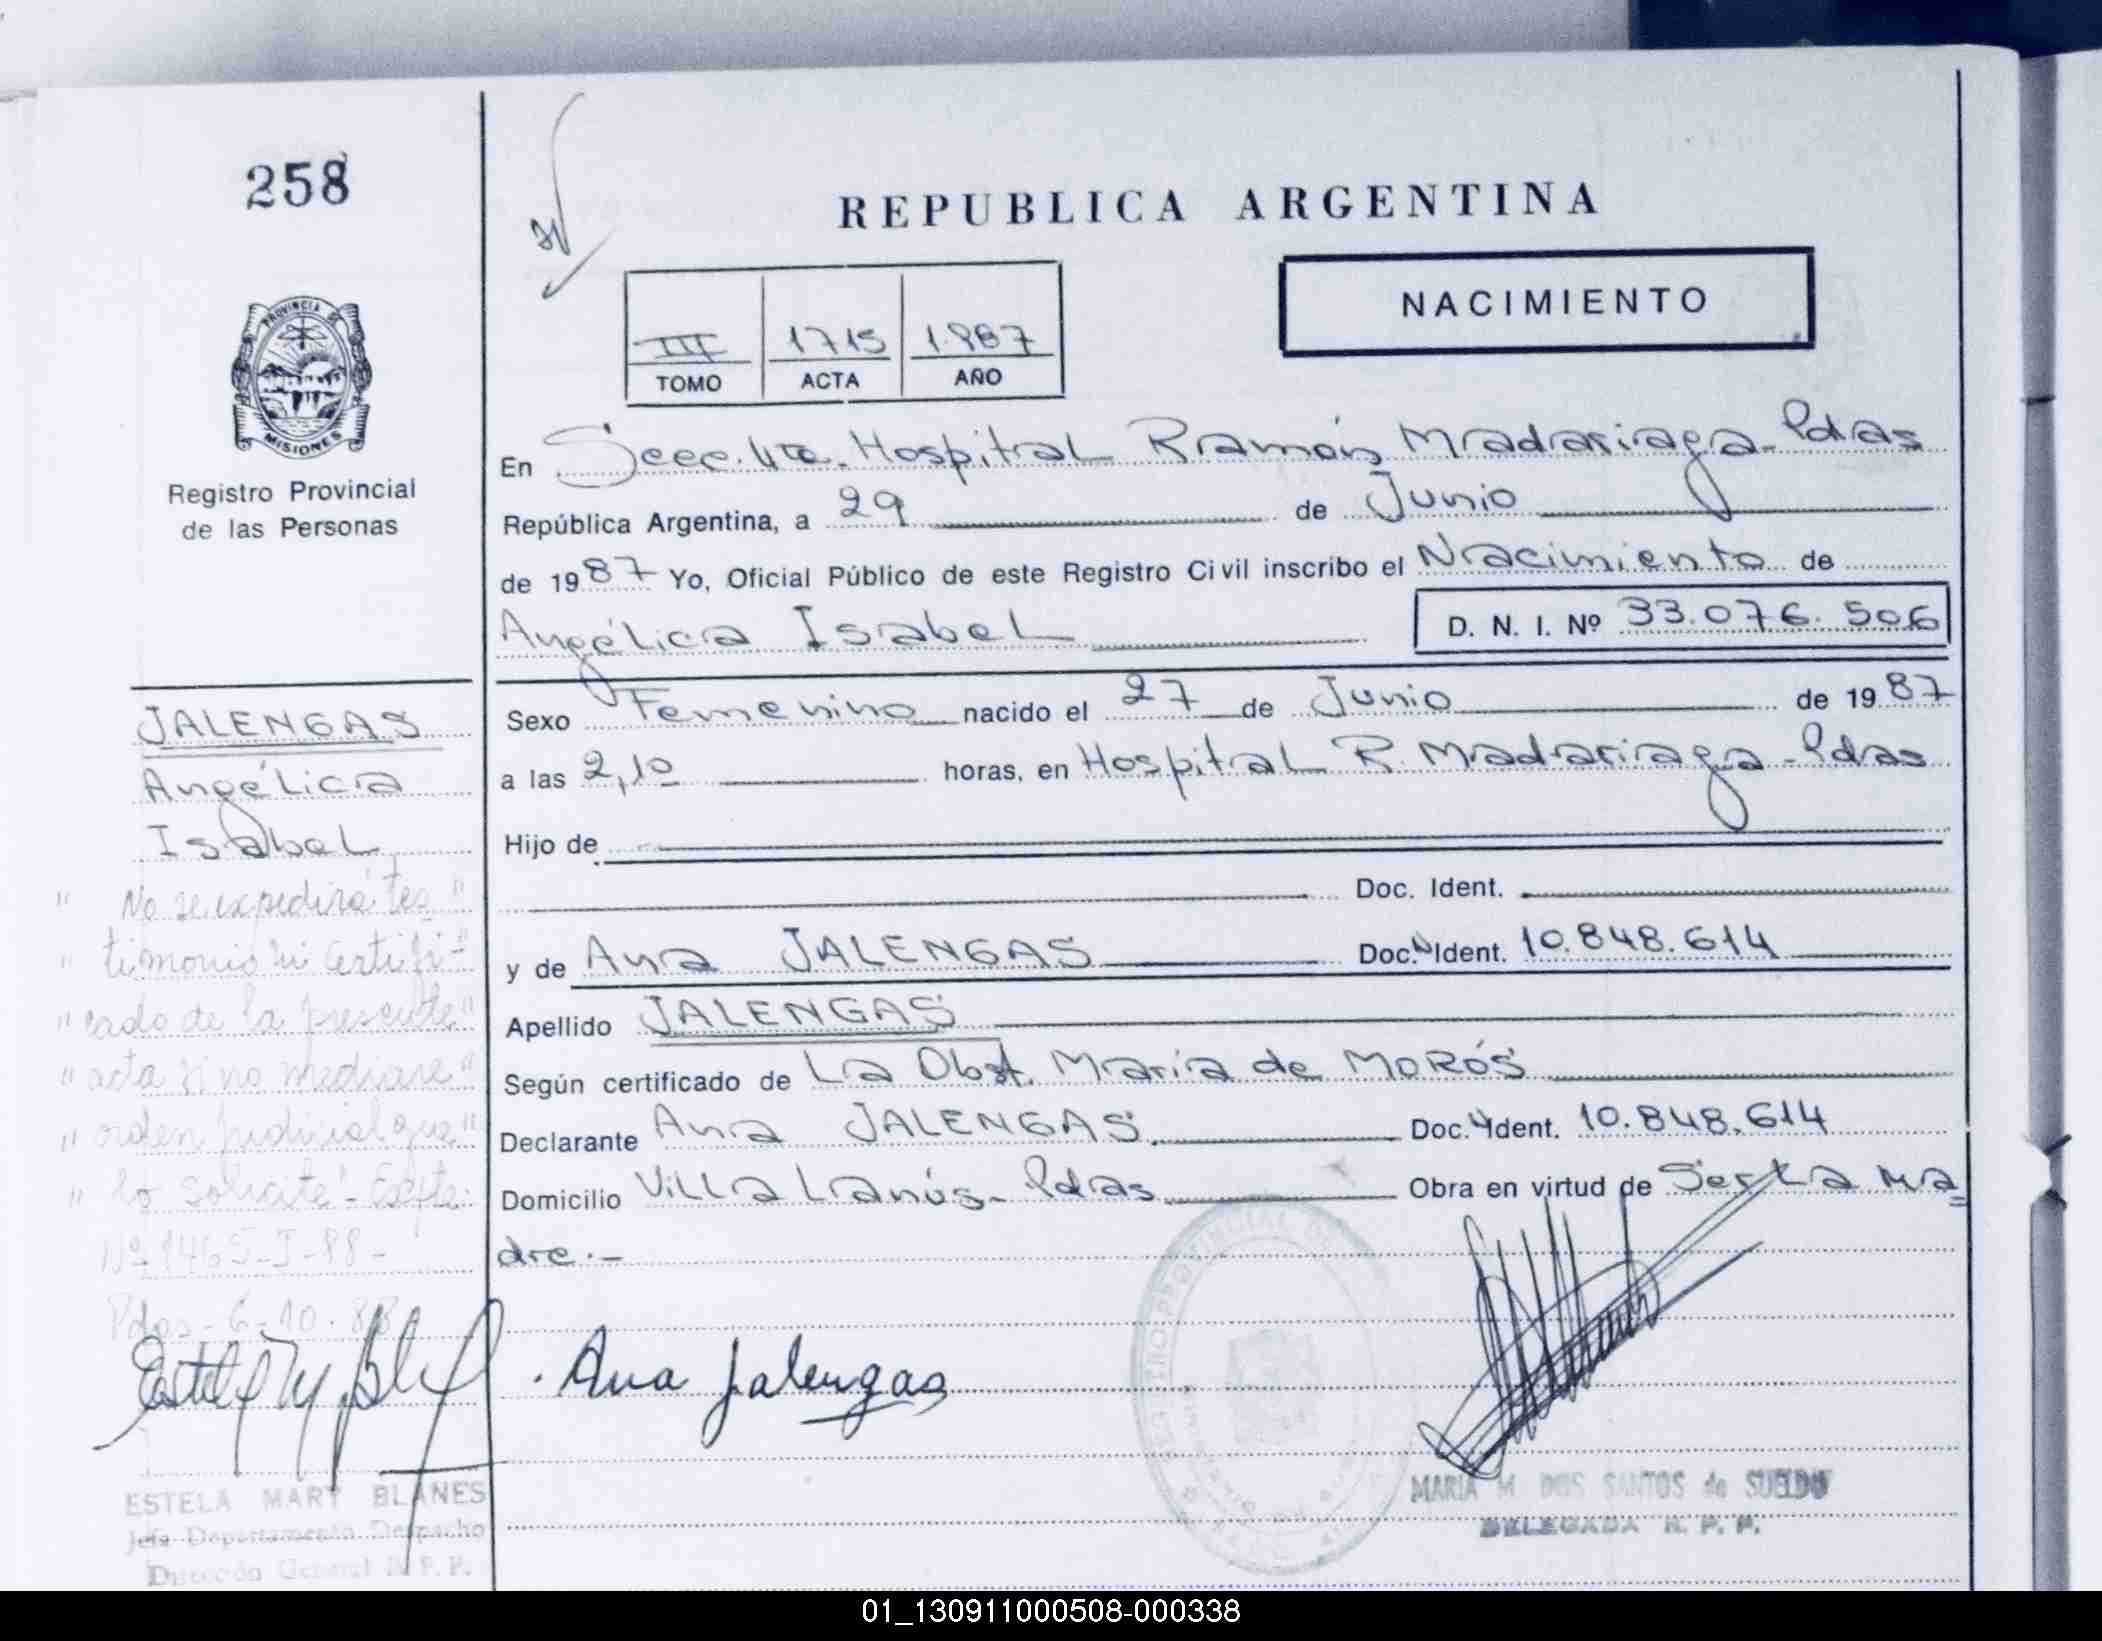 258
REPUBLICA ARGENTINA
NACIMIENTO
III 1715 1.987
TOMO ACTA AÑO
PROVINCIA DE
MISIONES
Registro Provincial
de las Personas
En Secc. 4ta. Hospital Ramón Madariaga - Pdas
República Argentina, a 29 de Junio
de 1987 Yo, Oficial Público de este Registro Civil inscribo el Nacimiento de
Angélica Isabel D. N. I. Nº 33.076.506
Sexo Femenino nacido el 27 de Junio de 1987
a las 2,10 horas, en Hospital R. Madariaga - Pdas
Hijo de
Doc. Ident.
y de Ana JALENGAS Doc. Ident. 10.848.614
Apellido JALENGAS
Según certificado de La Obst. María de MORÓS
Declarante Ana JALENGAS. Doc. Ident. 10.848.614
Domicilio Villa Lanús - Pdas Obra en virtud de Ser La Ma=
dre.-
JALENGAS
Angélica
Isabel
" No se expedirá tes "
" timonio ni certifi- "
" cado de la presente "
" acta si no mediare "
" orden judicial que "
" lo solicite" - Expte:
Nº 1465-J-88-
Pdas - 6-10-88
Ana Jalengas
REGISTRO PROVINCIAL DE
ESTELA MARY BLANES
Jefa Departamento Despacho
Dirección General R.P.P.
MARIA M. DOS SANTOS de SUELDO
DELEGADA R. P. P.
01_130911000508-000338